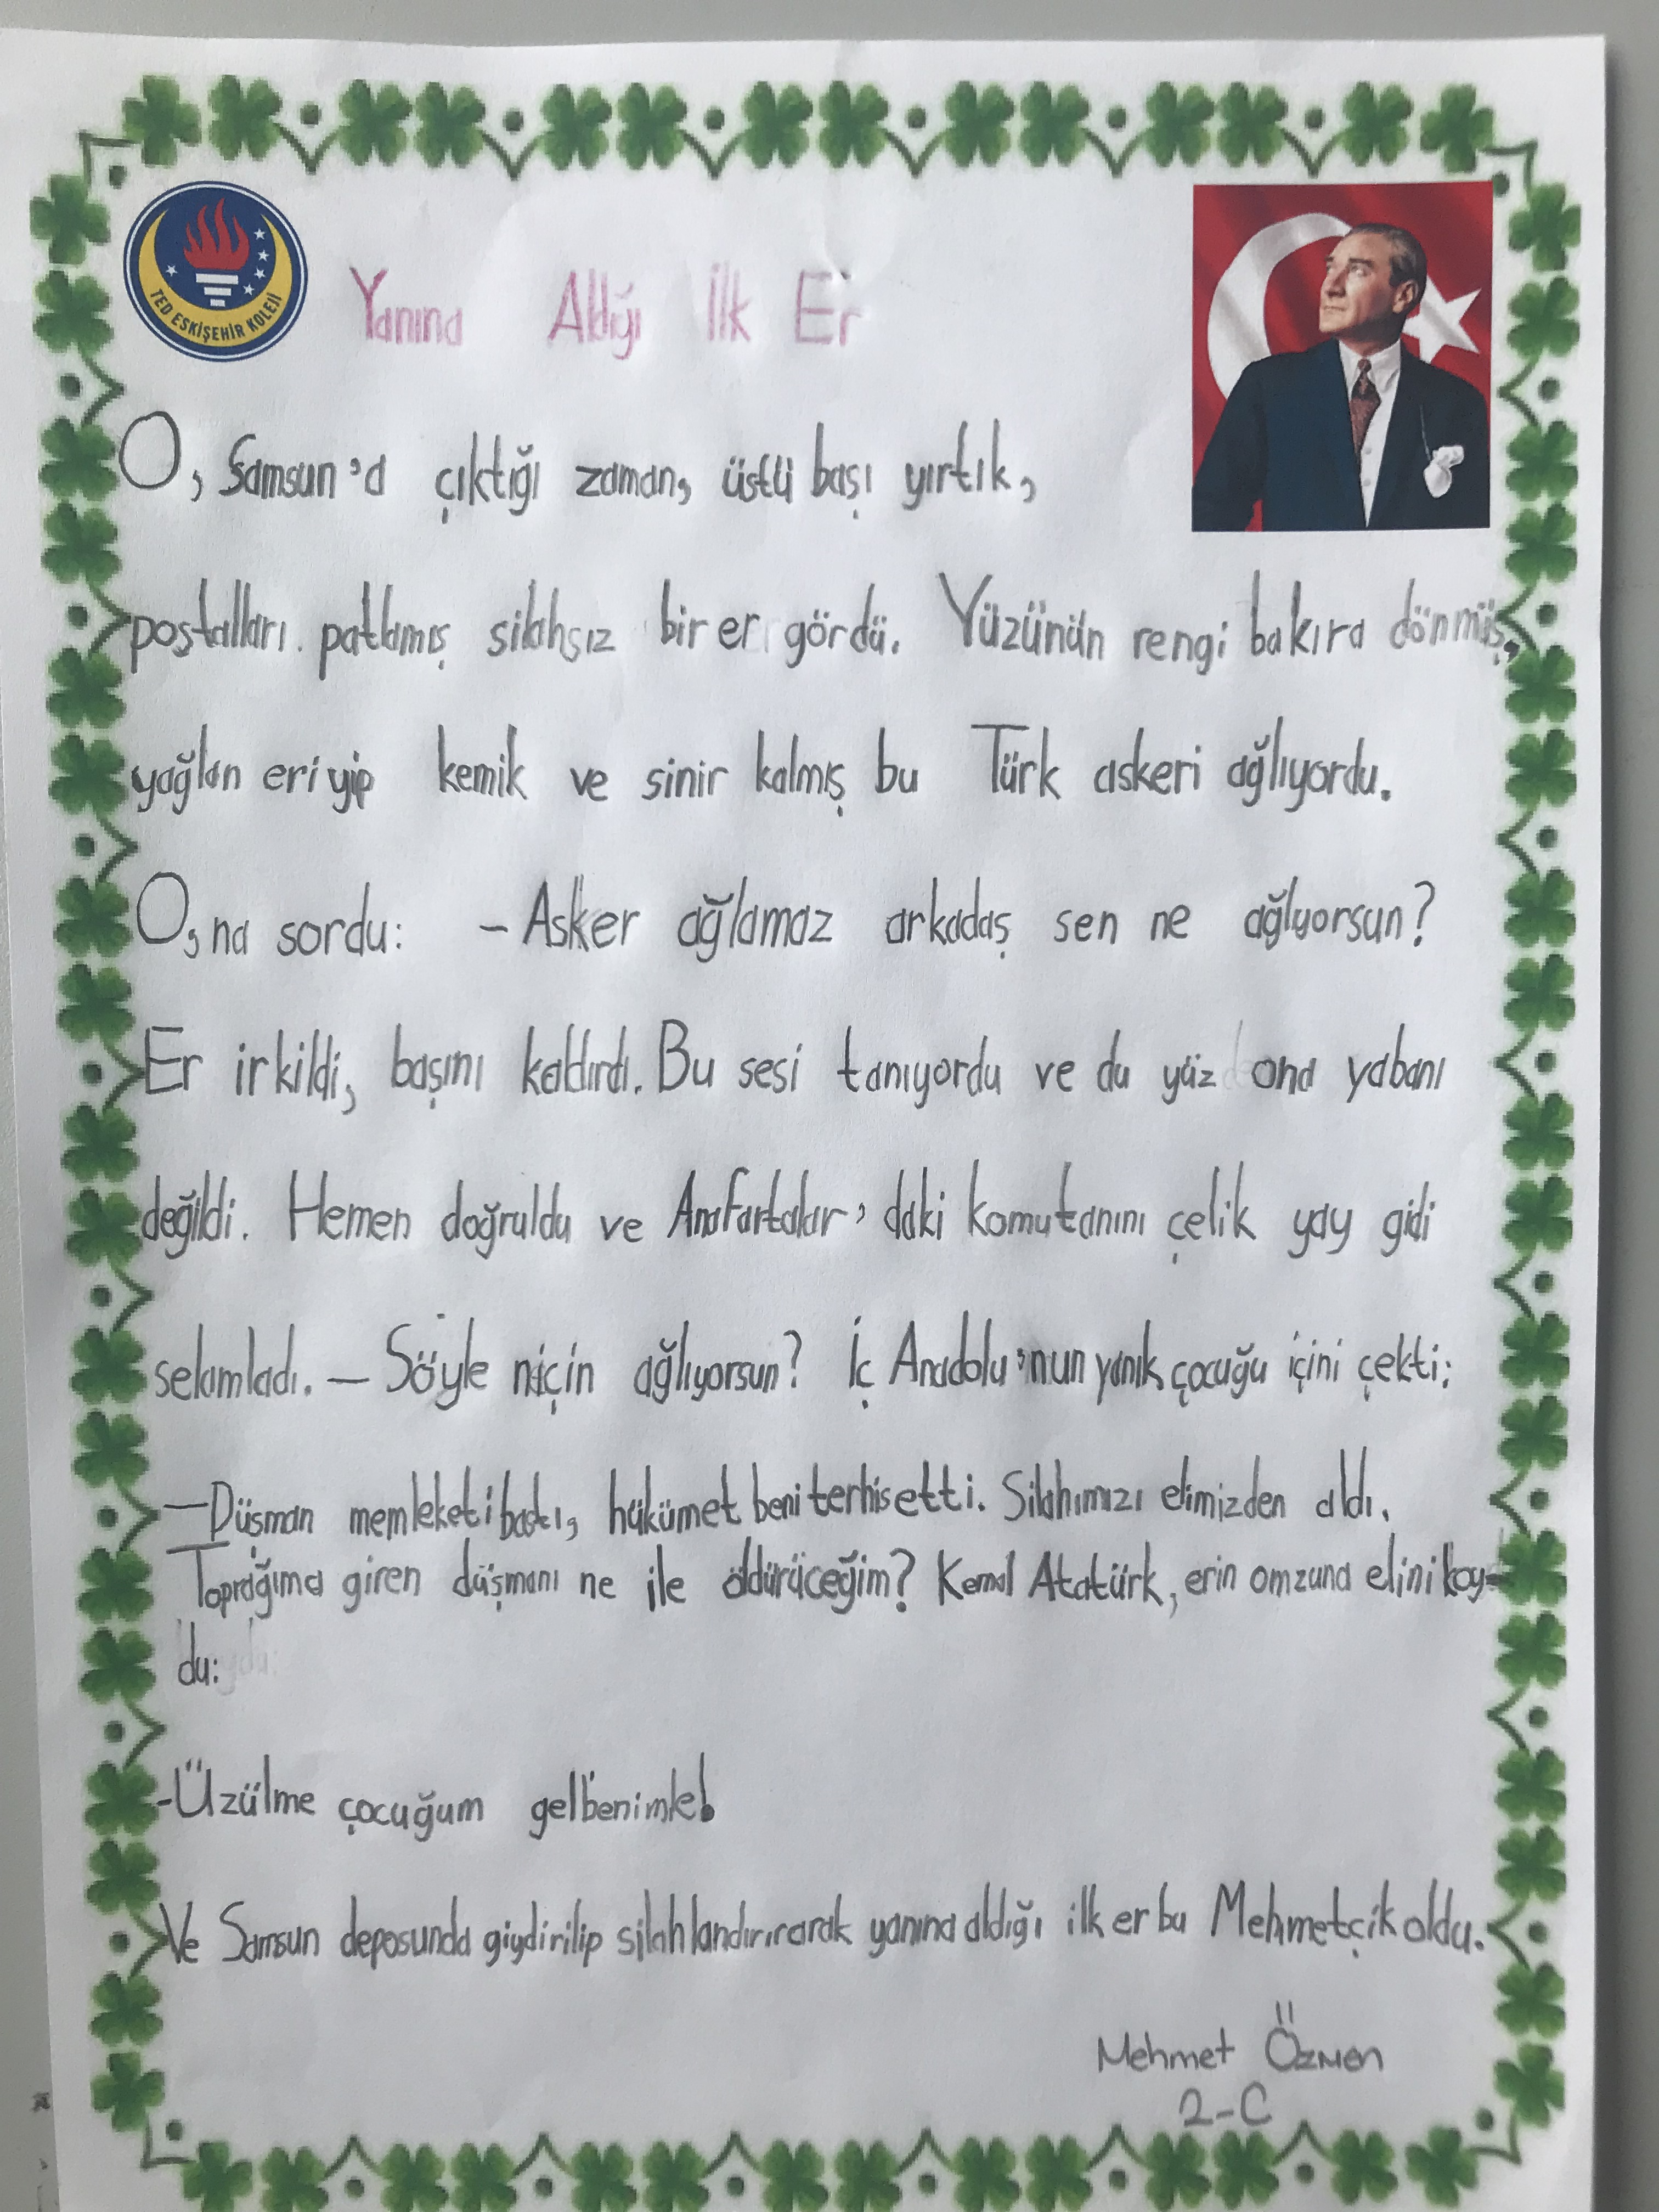 TED ESKİŞEHİR KOLEJİ
Yanına Aldığı İlk Er
O, Samsun'a çıktığı zaman, üstü başı yırtık,
postalları patlamış silahsız bir er gördü. Yüzünün rengi bakıra dönmüş,
yağları eriyip kemik ve sinir kalmış bu Türk askeri ağlıyordu.
O,na sordu: - Asker ağlamaz arkadaş sen ne ağlıyorsun?
Er irkildi, başını kaldırdı. Bu sesi tanıyordu ve du yüz ona yabanı
değildi. Hemen doğruldu ve Anafartalar'daki komutanını çelik yay gidi
selamladı. - Söyle niçin ağlıyorsun? İç Anadolu'nun yanık çocuğu içini çekti:
-Düşman memleketi bastı, hükümet beni terhis etti. Silahımızı elimizden aldı.
Toprağıma giren düşmanı ne ile öldürüceğim? Kemal Atatürk, erin omzuna elini koy-
du:
-Üzülme çocuğum gel benimle!
Ve Samsun deposunda giydirilip silahlandırırarak yanına aldığı ilk er bu Mehmetçik oldu.
Mehmet Özmen
2-C